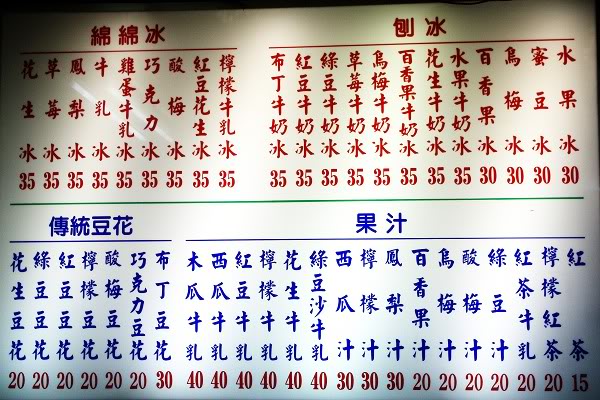 綿綿冰
花生冰 35
草莓冰 35
鳳梨冰 35
牛乳冰 35
雞蛋牛乳冰 35
巧克力冰 35
酸梅冰 35
紅豆花生冰 35
檸檬牛乳冰 35
刨冰
布丁牛奶冰 35
紅豆牛奶冰 35
綠豆牛奶冰 35
草莓牛奶冰 35
烏梅牛奶冰 35
百香果牛奶冰 35
花生牛奶冰 35
水果牛奶冰 35
百香果冰 30
烏梅冰 30
蜜豆冰 30
水果冰 30
傳統豆花
花生豆花 20
綠豆豆花 20
紅豆豆花 20
檸檬豆花 20
酸梅豆花 20
巧克力豆花 20
布丁豆花 30
果汁
木瓜牛乳 40
西瓜牛乳 40
紅豆牛乳 40
檸檬牛乳 40
花生牛乳 40
綠豆沙牛乳 40
西瓜汁 30
檸檬汁 30
鳳梨汁 30
百香果汁 20
烏梅汁 20
酸梅汁 20
綠豆汁 20
紅茶牛乳 20
檸檬紅茶 20
紅茶 15